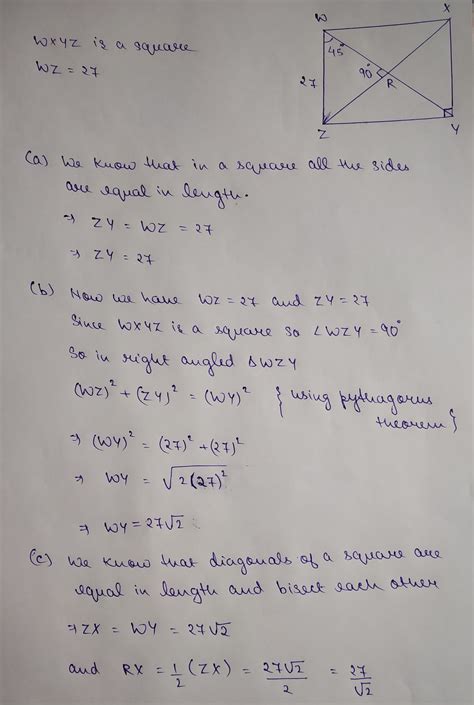 WXYZ is a square
WZ = 27
W
X
45°
90°
27
R
Z
Y
(a) We know that in a square all the sides
are equal in length.
⇒ ZY = WZ = 27
⇒ ZY = 27
(b) Now we have WZ = 27 and ZY = 27
Since WXYZ is a square so ∠WZY = 90°
So in right angled ΔWZY
(WZ)² + (ZY)² = (WY)² { using pythagorus
theorem }
⇒ (WY)² = (27)² + (27)²
⇒ WY = √2(27)²
⇒ WY = 27√2
(c) We know that diagonals of a square are
equal in length and bisect each other
⇒ ZX = WY = 27√2
and RX = 1/2 (ZX) = 27√2/2 = 27/√2